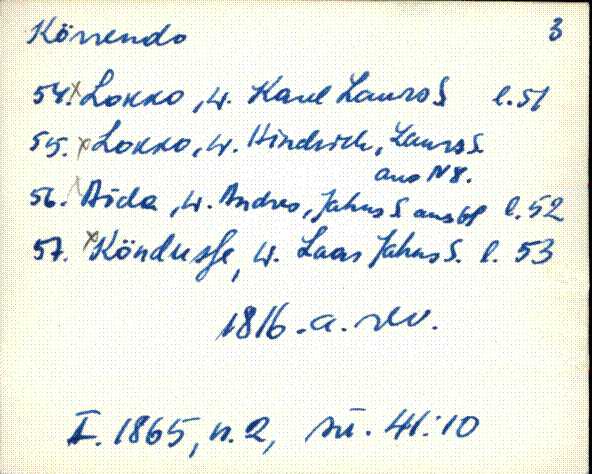 Könnendo 3
54. x Lokko, w. Karl Laurs S l. 51
55. x Lokko, w. Hindrich, Laurs S.
aus N 8.
56. x Aida, w. Andres, Jahns S aus 61 l. 52
57. x Köndusse, w. Laas Jahns S. l. 53
1816. a. rev.
I. 1865, n. 2, sü. 41:10